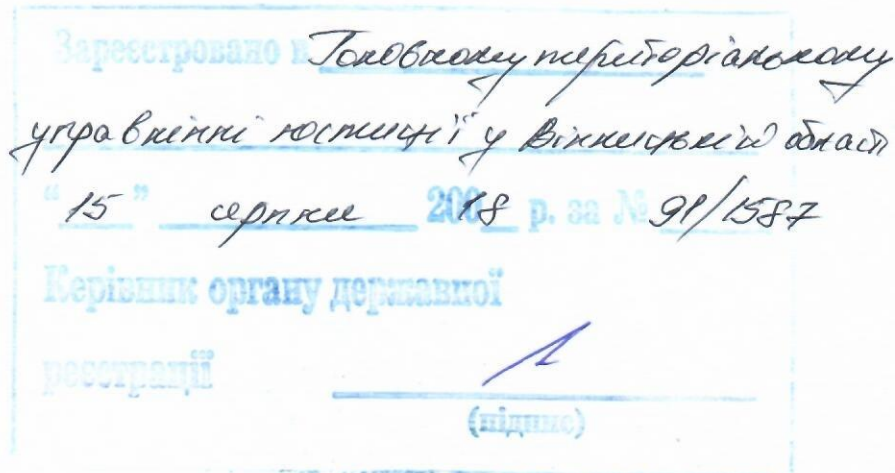 Зареєстровано в Головному територіальному
управлінні юстиції у Вінницькій області
“ 15 ” серпня 200 18 р. за № 91/1587
Керівник органу державної
реєстрації
(підпис)